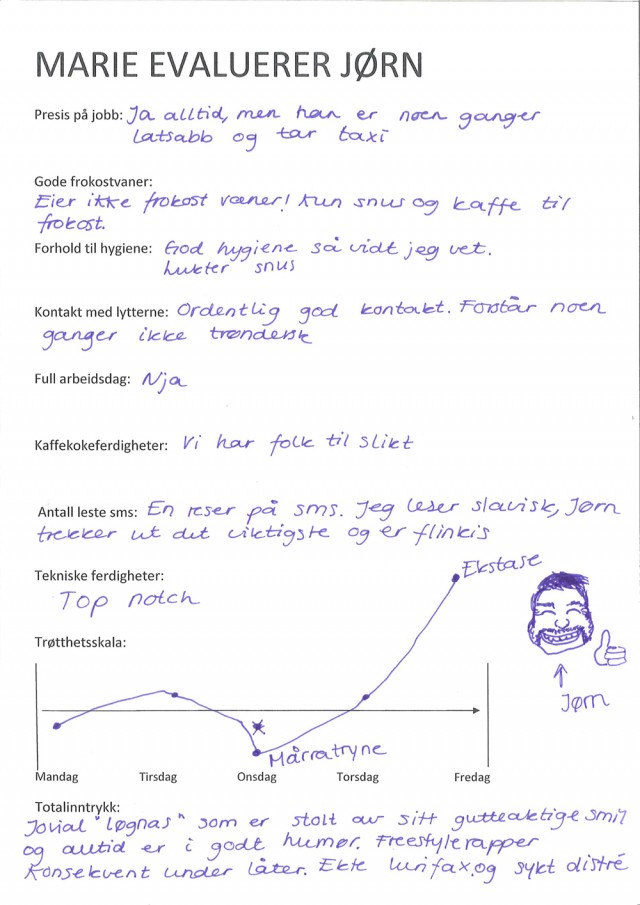 MARIE EVALUERER JØRN
Presis på jobb: Ja alltid, men han er noen ganger
latsabb og tar taxi
Gode frokostvaner:
Eier ikke frokost vaner! Kun snus og kaffe til
frokost.
Forhold til hygiene: God hygiene så vidt jeg vet.
lukter snus
Kontakt med lytterne: Ordentlig god kontakt. Forstår noen
ganger ikke trøndersk
Full arbeidsdag: Nja
Kaffekokeferdigheter: Vi har folk til slikt
Antall leste sms: En reser på sms. Jeg leser slavisk, Jørn
trekker ut det viktigste og er flinkis
Tekniske ferdigheter:
Ekstase
Top notch
Trøtthetsskala:
Jørn
Mårratryne
Mandag Tirsdag Onsdag Torsdag Fredag
Totalinntrykk:
Jovial "løgnas" som er stolt av sitt gutteaktige smil
og alltid er i godt humør. Freestylerapper
konsekvent under låter. Ekte lurifax og sykt distré